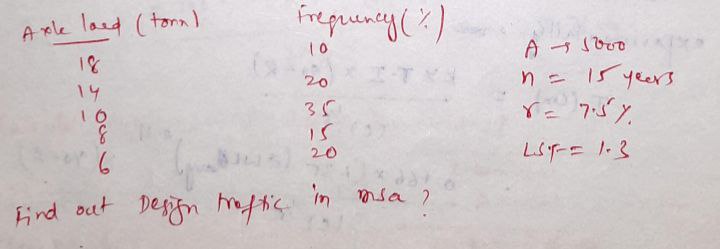 Axle load (tonn) Frequency (%)
18 10
14 20
10 35
8 15
6 20
A → 5000
n = 15 years
r = 7.5%
LSF = 1.3
Find out Design traffic in msa ?